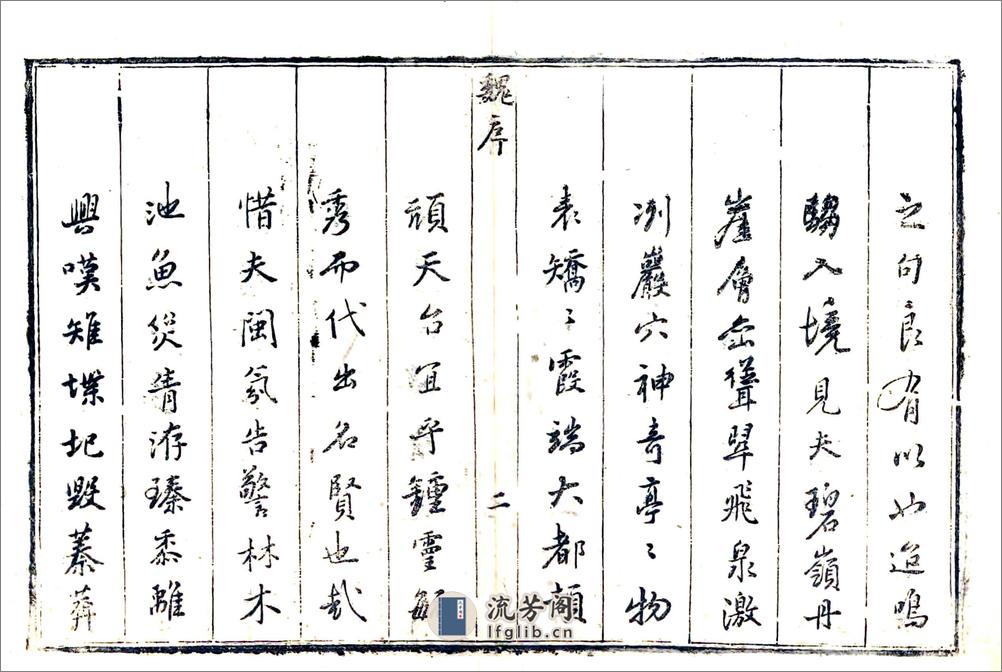 之句良有以也迨鳴
騶入境見夫碧嶺丹
崖層巒聳翠飛泉激
冽巖穴神奇亭〻物
表矯〻霞端大都頡
魏序
二
頏天台宜乎鍾靈毓
秀而代出名賢也哉
惜夫閩氛告警林木
池魚災眚洊臻黍離
興嘆雉堞圮毀蓁莽
流芳阁
lfglib.cn